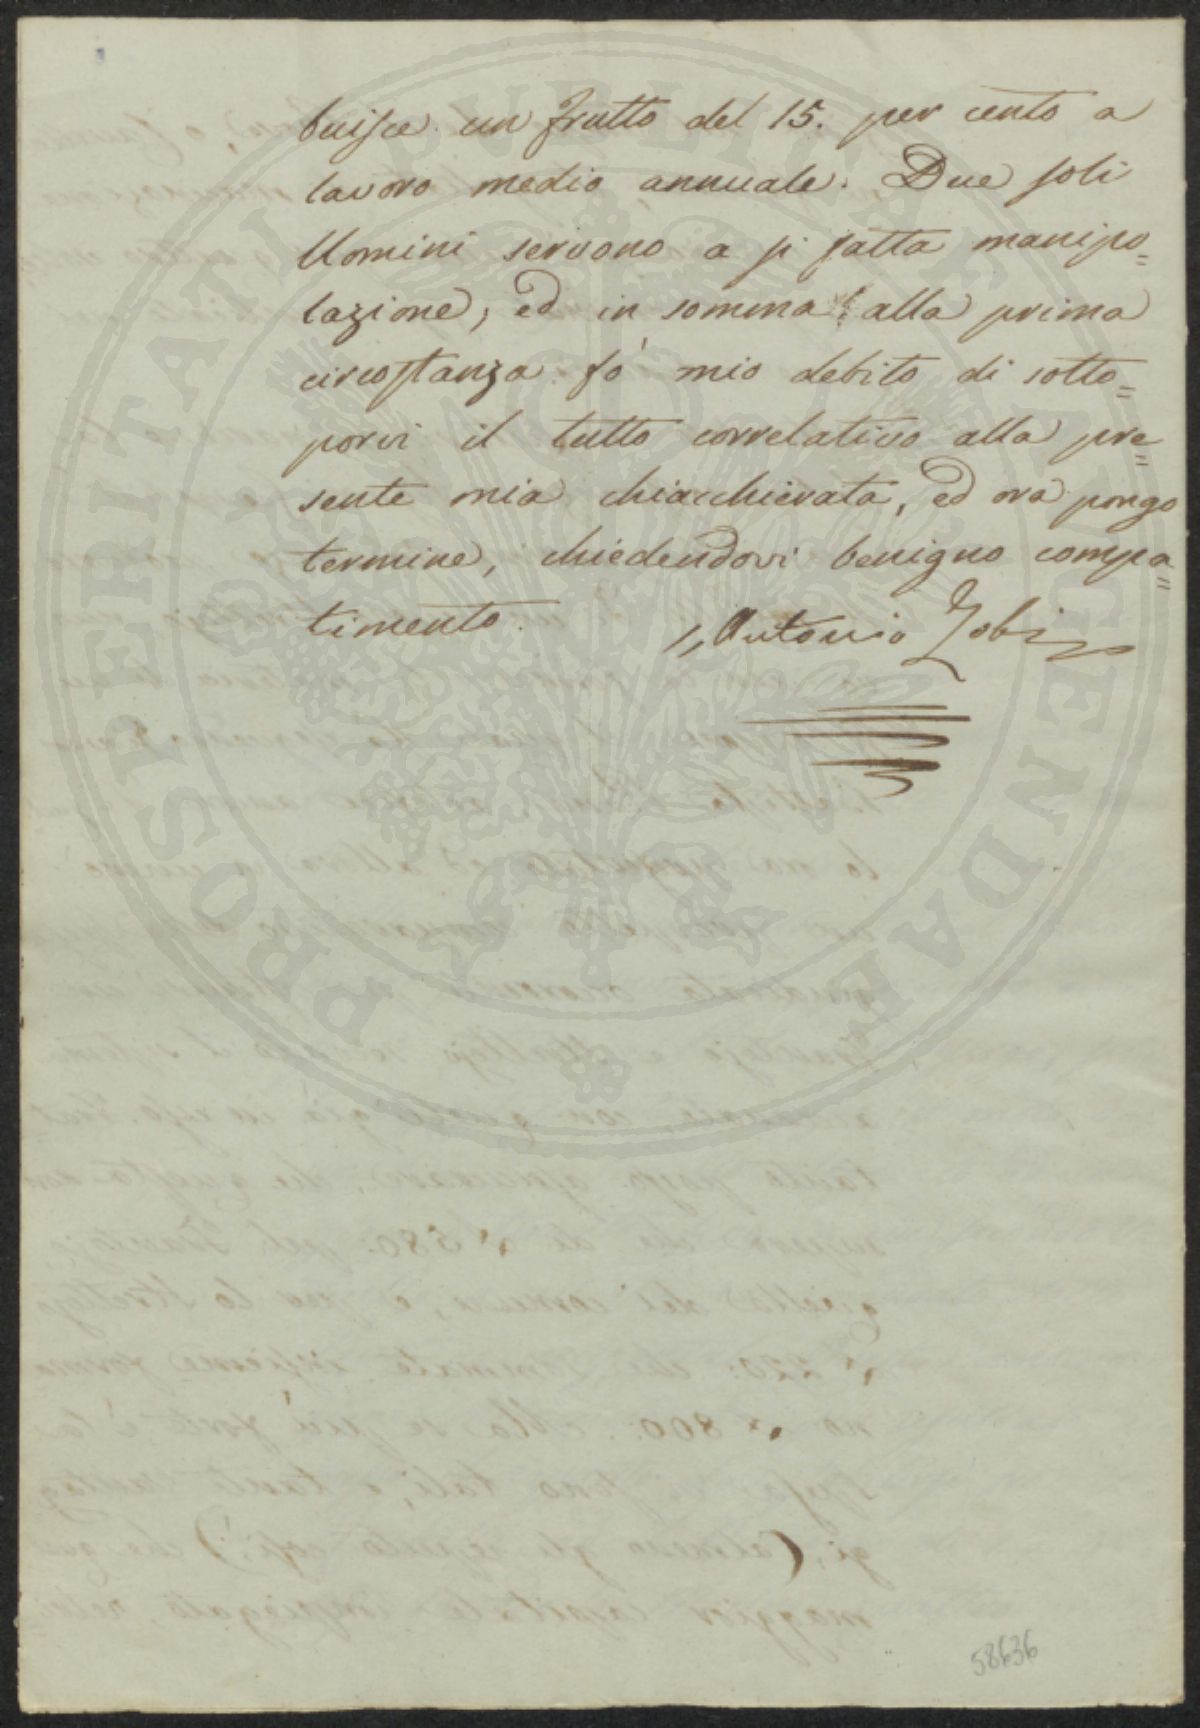 buisce un frutto del 15. per cento a
lavoro medio annuale. Due soli
Uomini servono a si fatta manipo=
lazione, ed in somma alla prima
circostanza fò mio debito di sotto=
porvi il tutto correlativo alla pre=
sente mia chiacchierata, ed ora pongo
termine, chiedendovi benigno compa=
timento.
Antonio Zobi
58636
PROSPERITATI PUBLICAE AUGENDAE